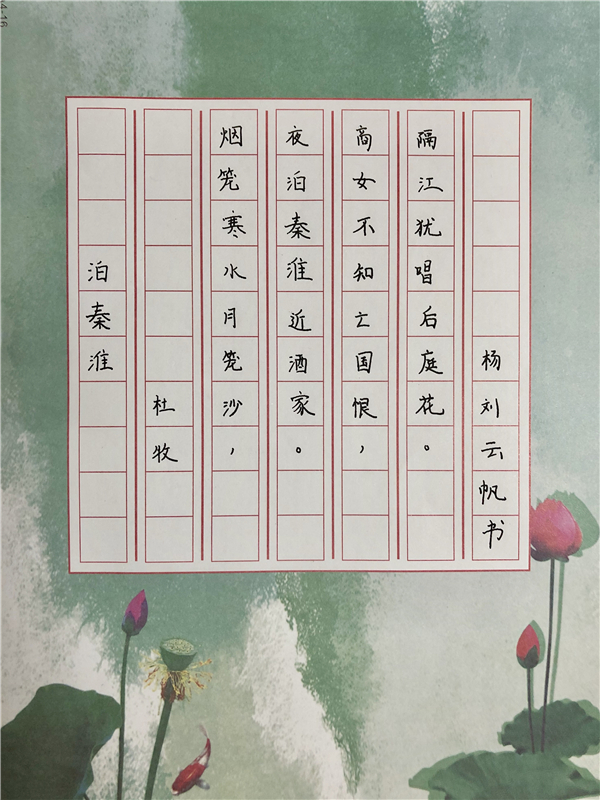 泊秦淮
杜牧
烟笼寒水月笼沙，
夜泊秦淮近酒家。
商女不知亡国恨，
隔江犹唱后庭花。
杨刘云帆书